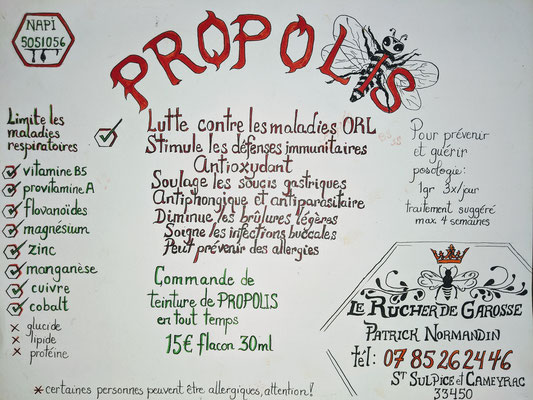 NAPI
5051056
PROPOLIS
Limite les
maladies
respiratoires
vitamine B5
provitamine A
flavanoïdes
magnésium
zinc
manganèse
cuivre
cobalt
glucide
lipide
protéine
Lutte contre les maladies ORL
Stimule les défenses immunitaires
Antioxydant
Soulage les soucis gastriques
Antiphongique et antiparasitaire
Diminue les brûlures légères
Soigne les infections buccales
Peut prévenir des allergies
Commande de
teinture de PROPOLIS
en tout temps
15€ flacon 30ml
Pour prévenir
et guérir
posologie:
1gr 3x/jour
traitement suggéré
max. 4 semaines
LE RUCHER DE GAROSSE
PATRICK NORMANDIN
tél: 07 85 26 24 46
ST SULPICE et CAMEYRAC
33450
*certaines personnes peuvent être allergiques, attention!